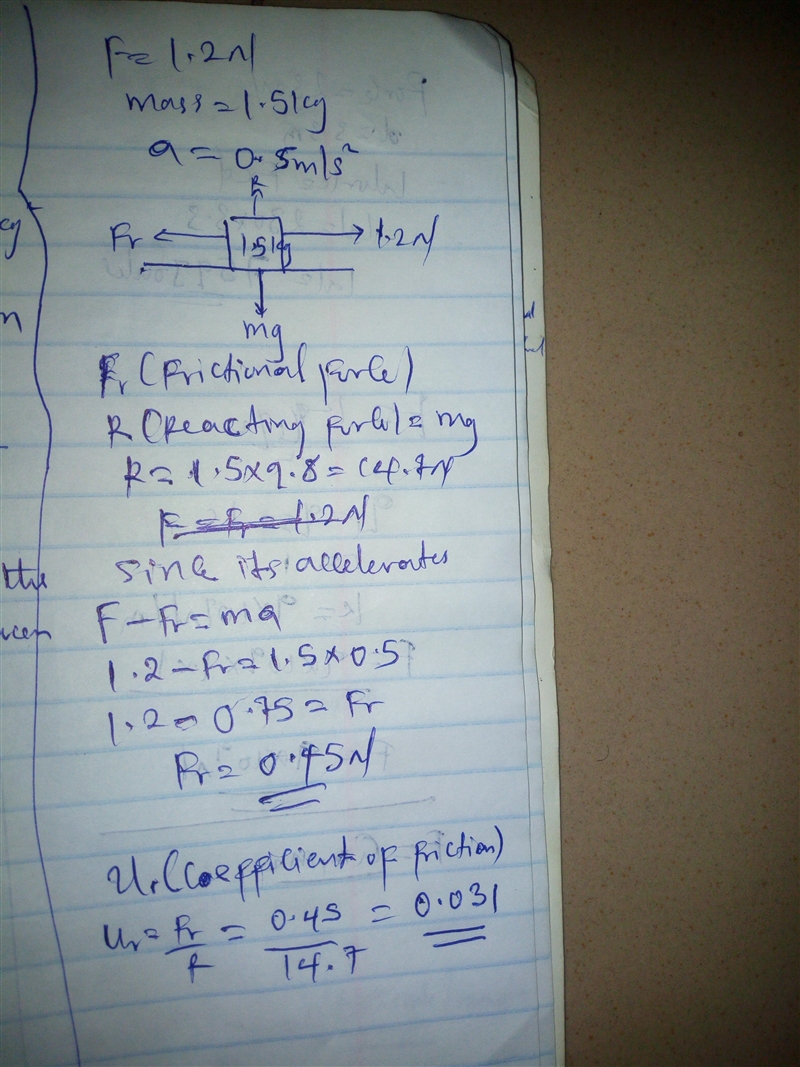 F = 1.2N
mass = 1.5kg
a = 0.5m/s²
R
Fr
1.5kg
1.2N
mg
Fr (Frictional force)
R (Reacting force) = mg
R = 1.5x9.8 = 14.7N
F = Fr = 1.2N
Since its accelerates
F - Fr = ma
1.2 - Fr = 1.5x0.5
1.2 - 0.75 = Fr
Fr = 0.45N
Ur (Coefficient of friction)
Ur = Fr/R = 0.45/14.7 = 0.031
cg
n
the